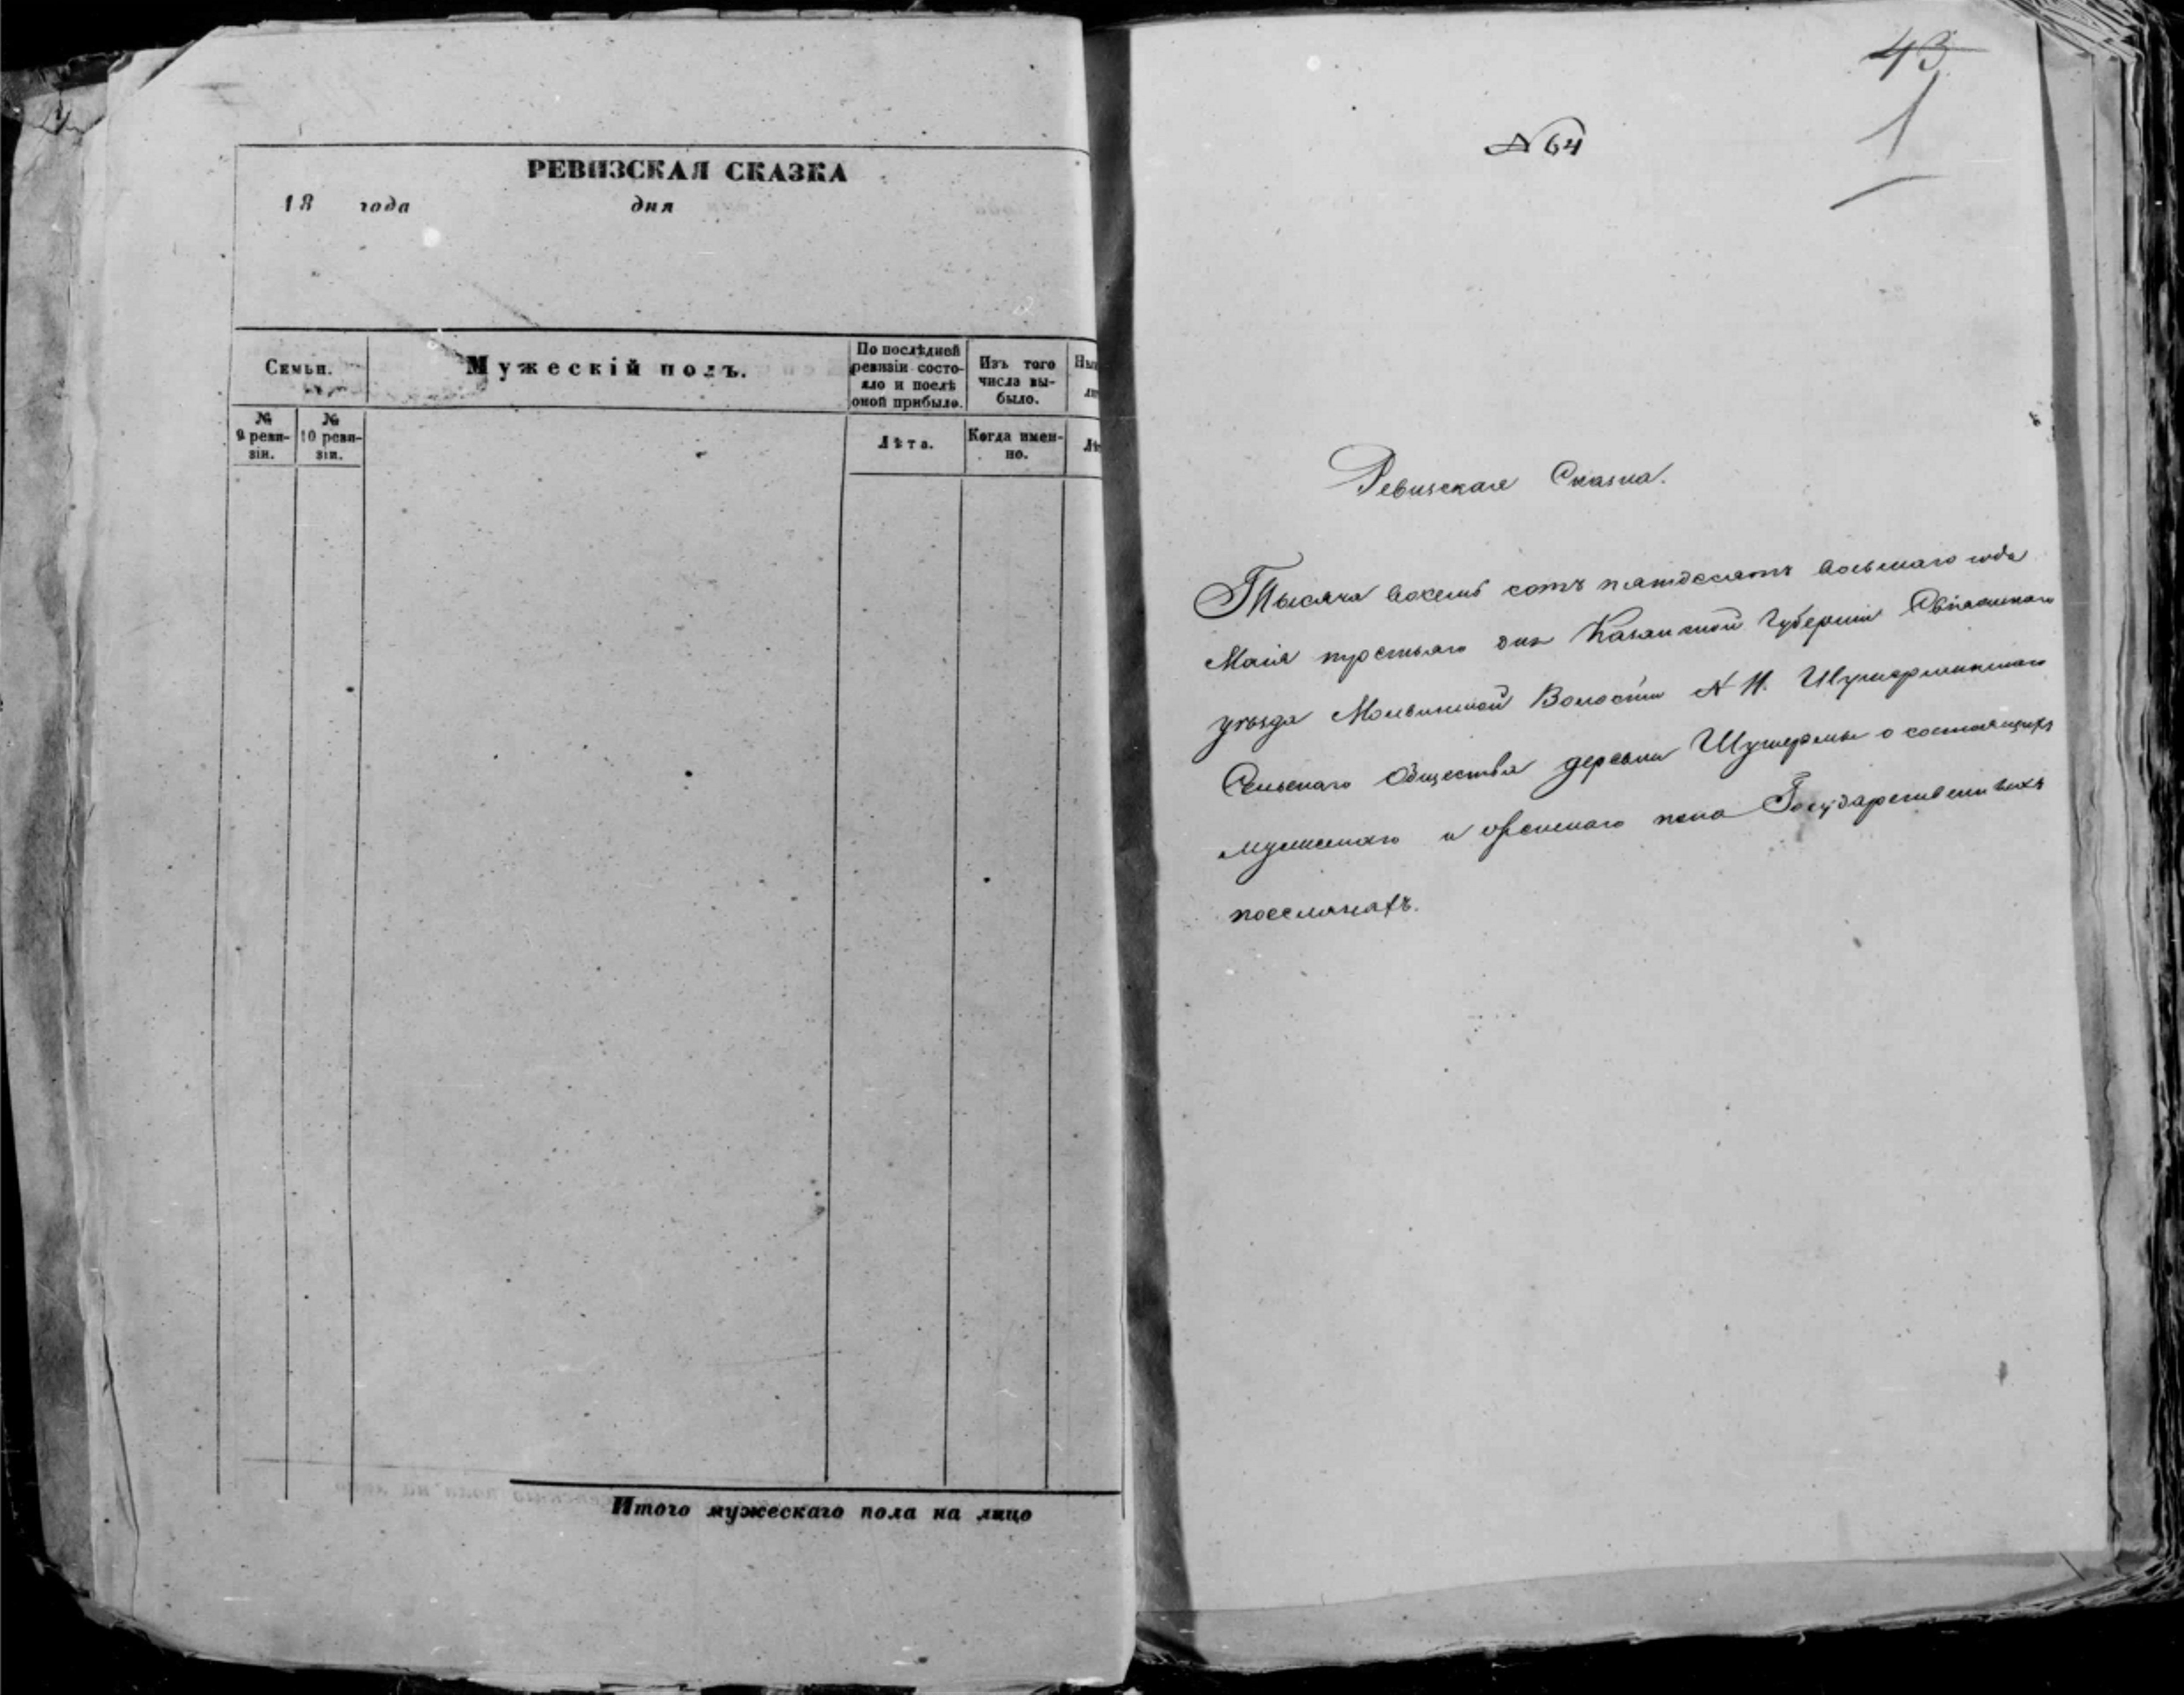 РЕВИЗСКАЯ СКАЗКА
18 года дня
Семьи.
Мужескій полъ.
По послѣдней
ревизіи состо-
яло и послѣ
оной прибыло.
Изъ того
числа вы-
было.
№
9 реви-
зіи.
№
10 реви-
зіи.
Лѣта.
Когда имен-
но.
Итого мужескаго пола на лицо
43
1
№ 64
Ревизская Сказка.
Тысяча восемь сотъ пятдесятъ восьмаго года
Маія третьяго дня Казанской Губерніи Свіяжскаго
уѣзда Молвинской Волости № 11. Шушерминскаго
Сельскаго Общества деревни Шушермы о состоящихъ
мужескаго и женскаго пола Государственныхъ
поселянахъ.